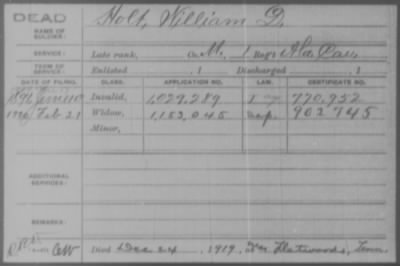 DEAD
NAME OF SOLDIER: Holt, William D.
SERVICE: Late rank, Co. M, 1 Reg't Ala. Cav.
TERM OF SERVICE: Enlisted , 1 Discharged , 1
DATE OF FILING. CLASS. APPLICATION NO. LAW. CERTIFICATE NO.
Invalid, 1,029,289 770,952
Feb 21 Widow, 1,153,045 902745
Minor,
ADDITIONAL SERVICES:
REMARKS:
Died Dec 24, 1919, Flatwoods, Tenn.